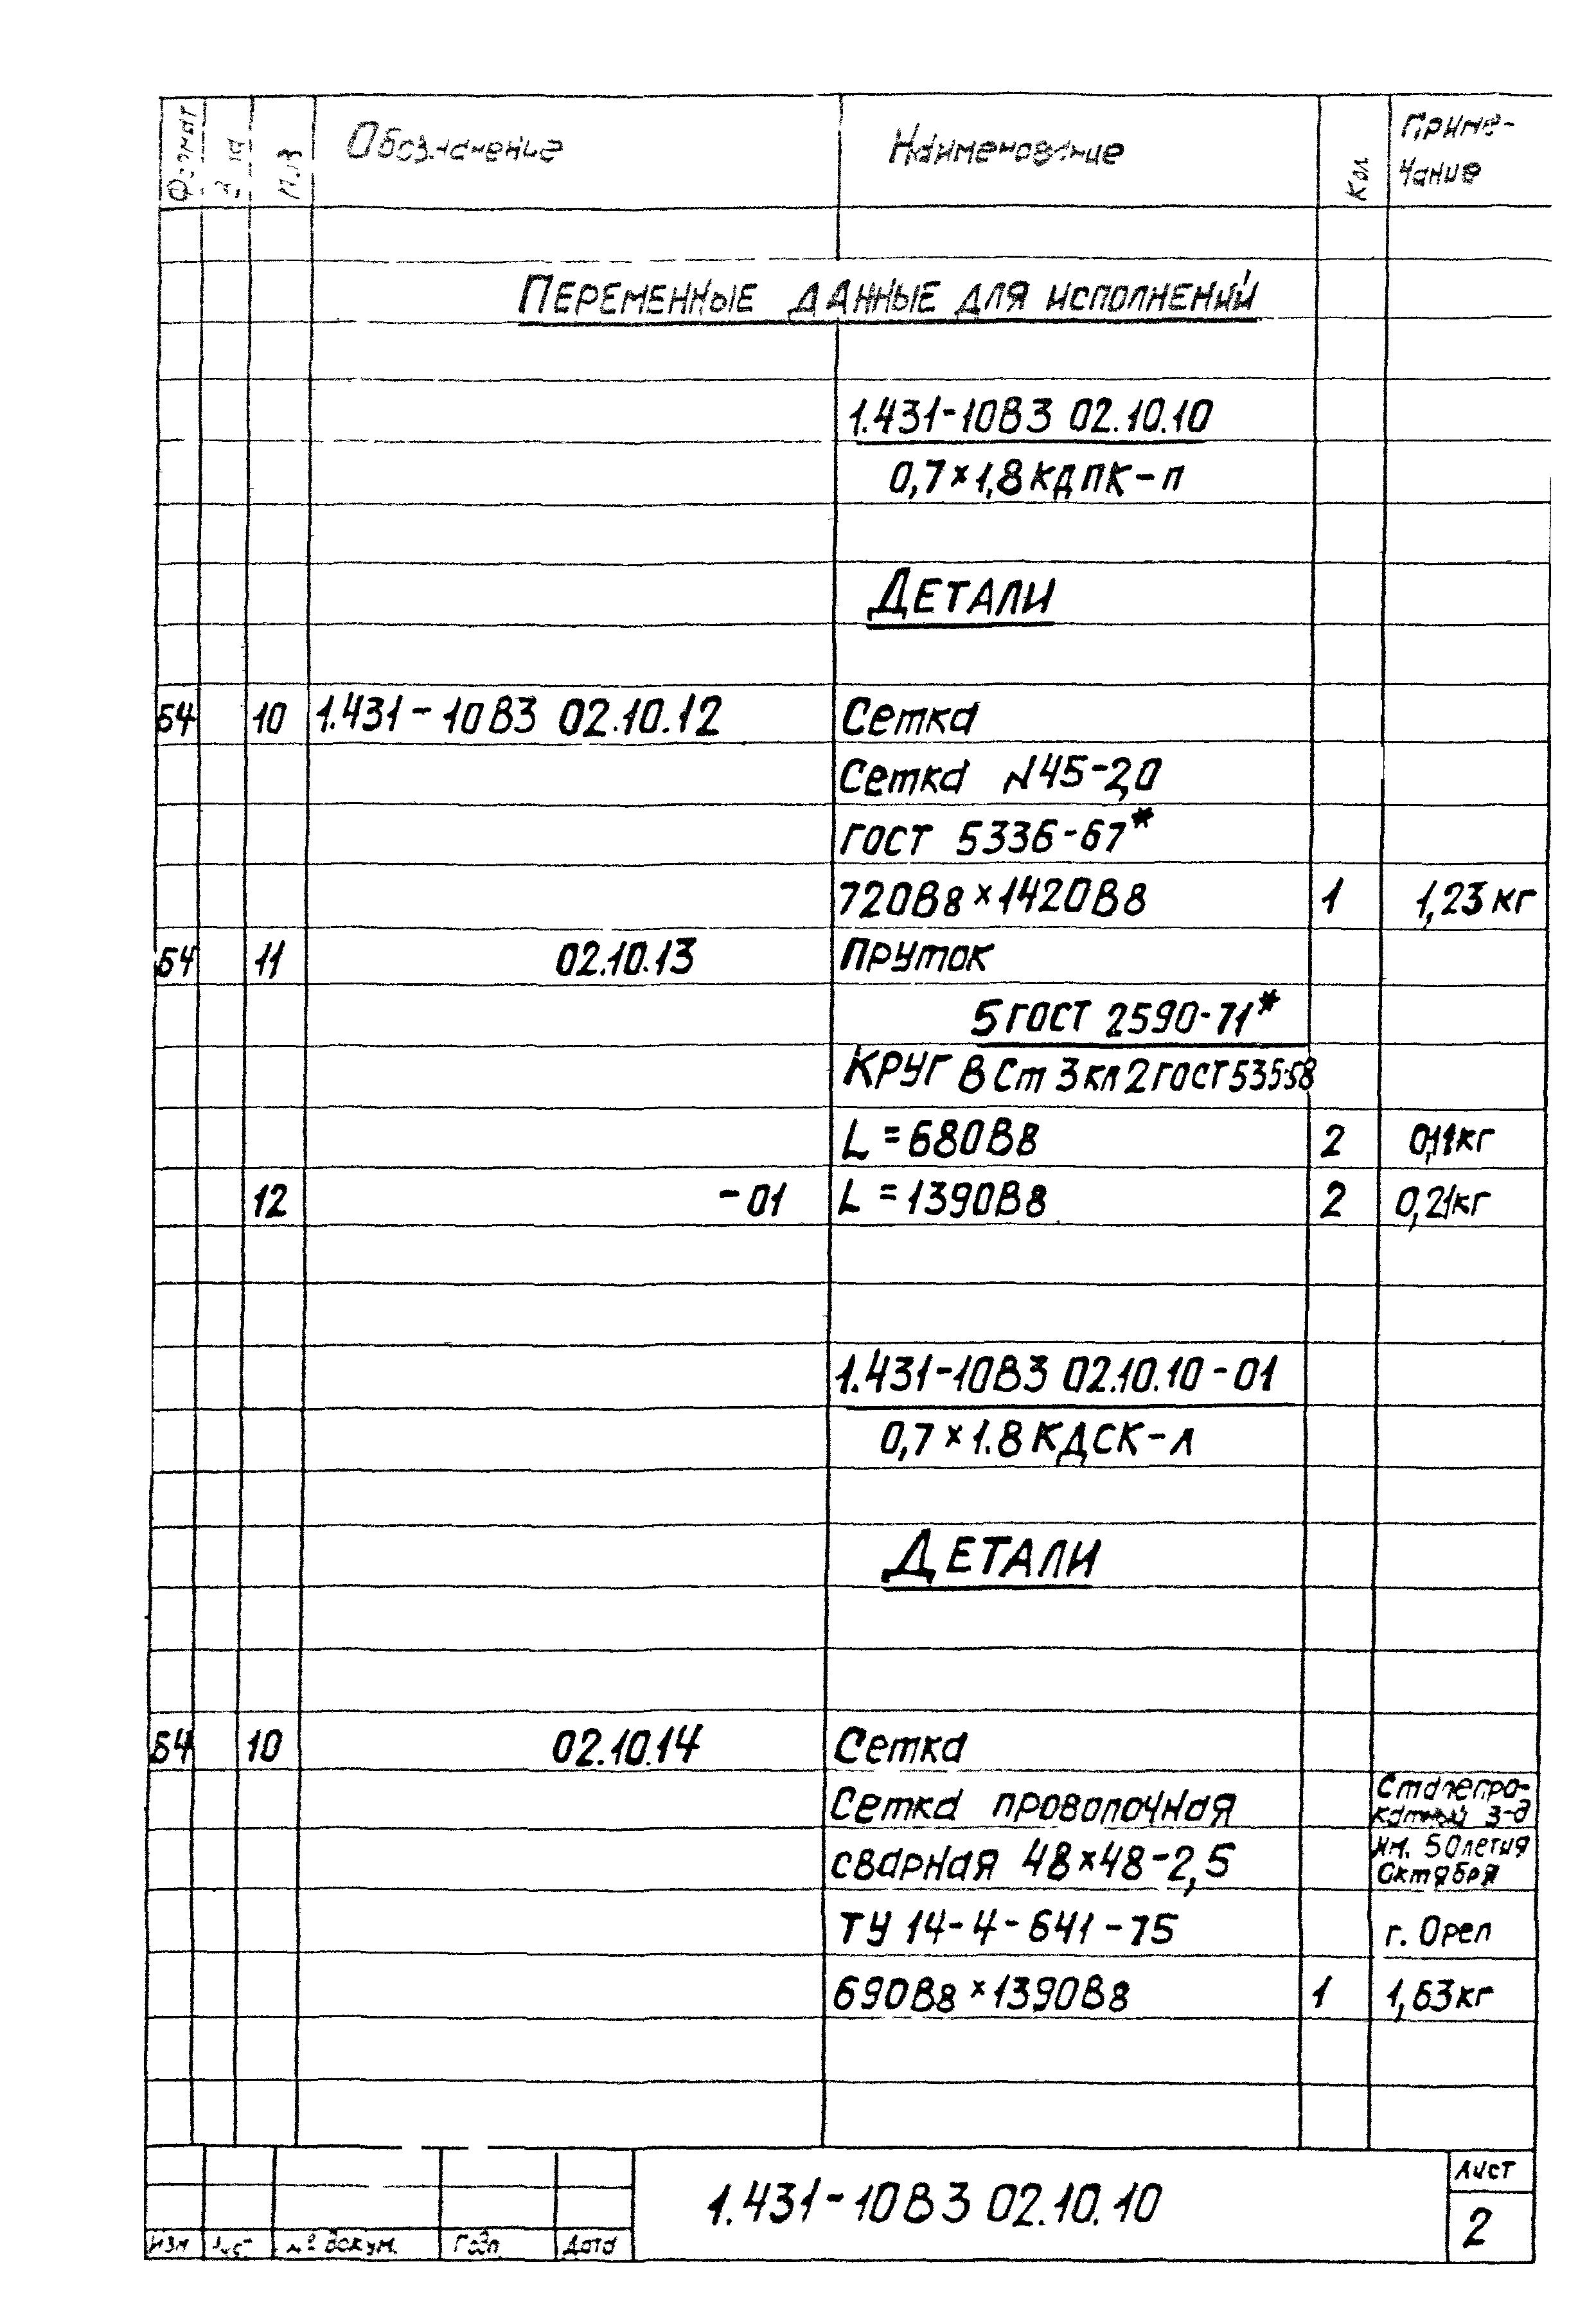 Формат
Зона
Поз
Обозначение
Наименование
Кол
Приме-
чание
Переменные данные для исполнений
1.431-10В3 02.10.10
0,7×1,8КДПК-п
Детали
Б4 10 1.431-10В3 02.10.12 Сетка
Сетка №45-2,0
ГОСТ 5336-67*
720В8×1420В8 1 1,23 кг
Б4 11 02.10.13 Пруток
5 ГОСТ 2590-71*
Круг ВСт3кп2 ГОСТ 535-58
L=680В8 2 0,11кг
12 -01 L=1390В8 2 0,21кг
1.431-10В3 02.10.10-01
0,7×1.8КДСК-л
Детали
Б4 10 02.10.14 Сетка
Сетка проволочная Сталепро-
катный з-д
сварная 48×48-2,5 им. 50летия
Октября
ТУ 14-4-641-75 г. Орел
690В8×1390В8 1 1,63кг
Изм Лист № докум. Подп. Дата
1.431-10В3 02.10.10
Лист
2